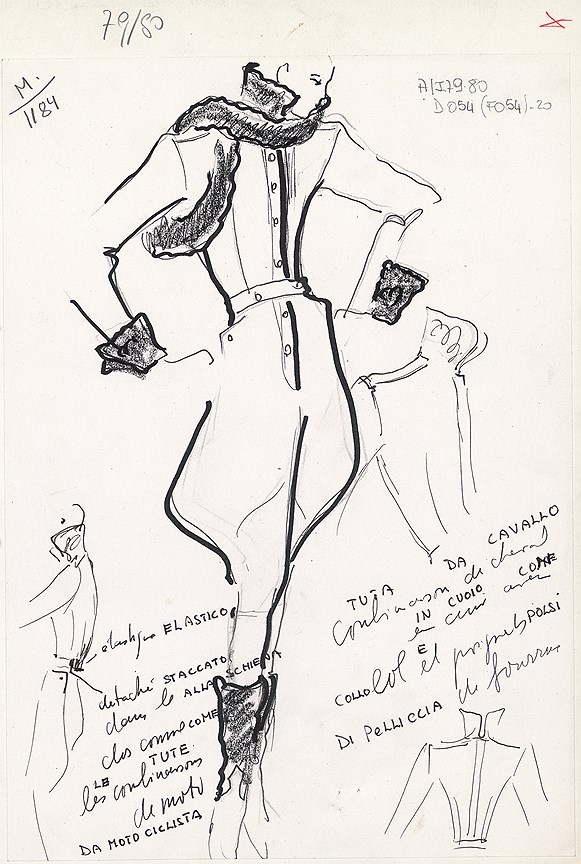 79/80
M.
1184
A/I 79.80
D054 (F054)-20
TUTA DA CAVALLO
Combinaison de cheval
IN CUOIO COME
en cuir avec
E
COLLO POLSI
col et poignets
DI PELLICCIA
de fourrure
élastique ELASTICO
detaché STACCATO
dans le ALLA SCHIENA
dos comme COME
LE TUTE
les combinaisons
de moto
DA MOTOCICLISTA